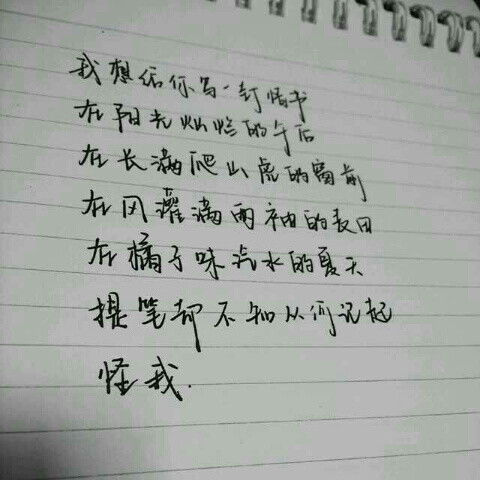 我想给你写一封情书
在阳光灿烂的午后
在长满爬山虎的窗前
在风灌满两袖的表田
在橘子味汽水的夏天
提笔却不知从何记起
怪我.